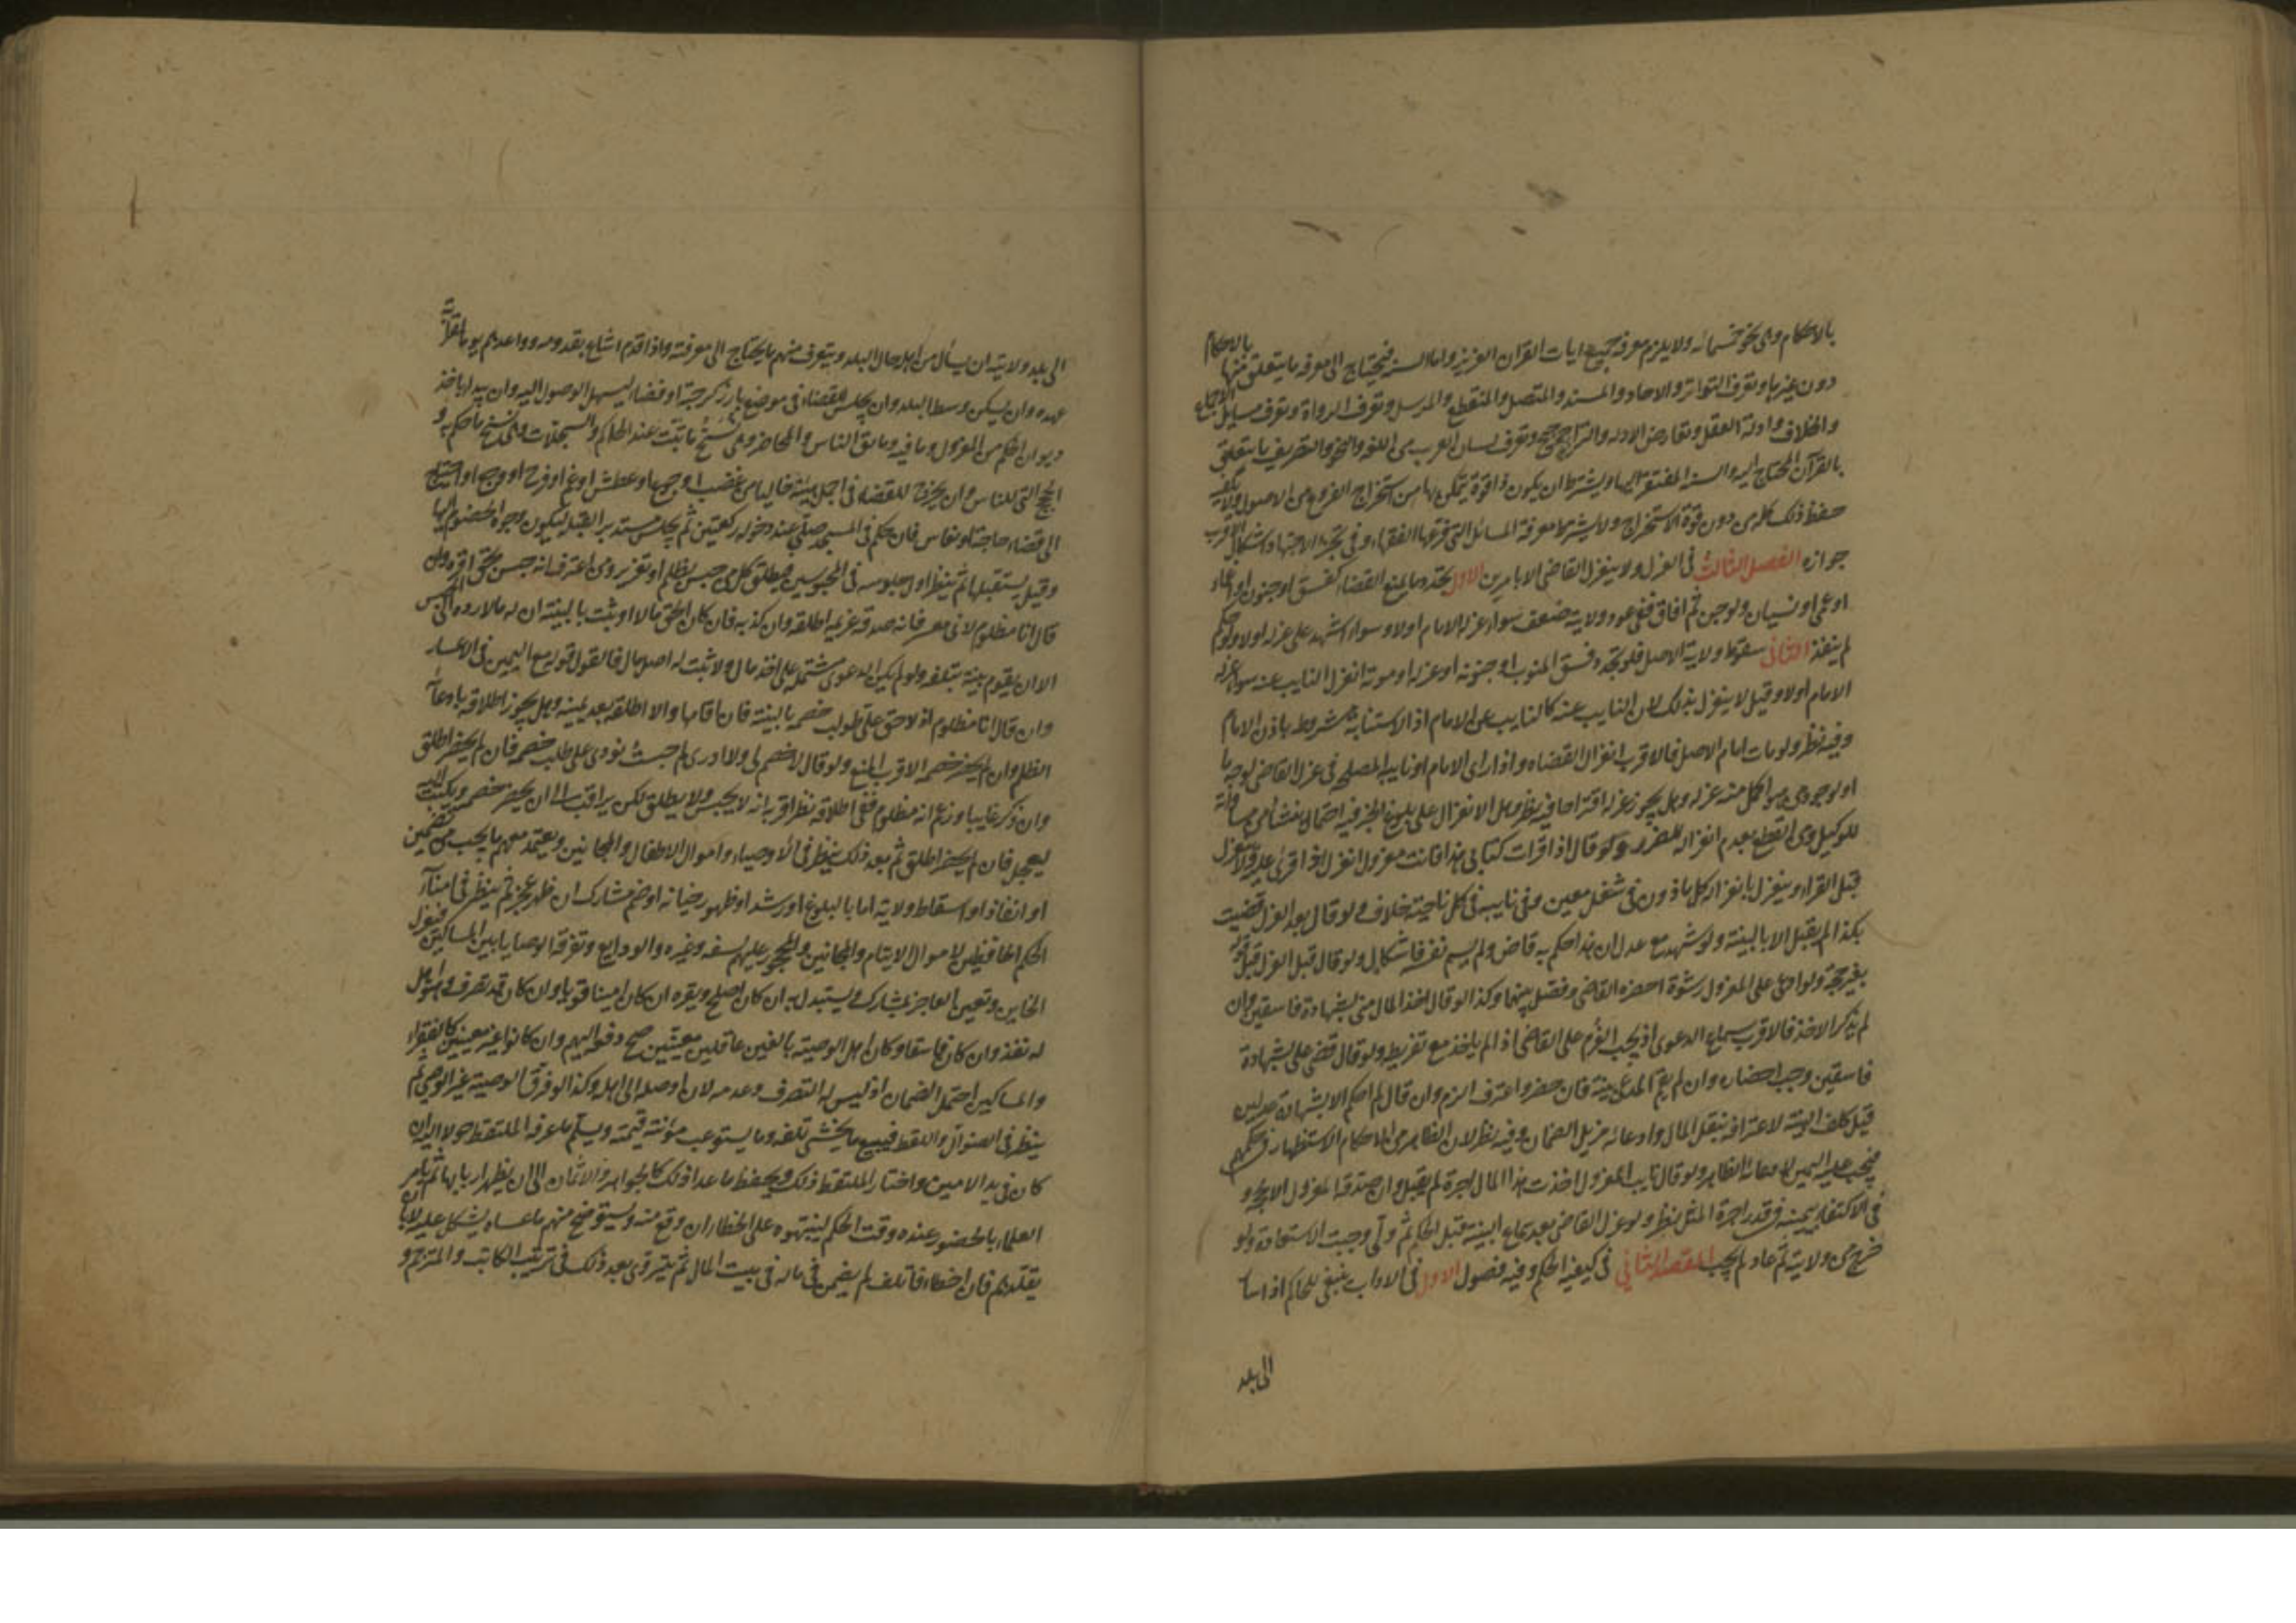 بالاحكام وهى نحو خمسمائه ولا يلزم معرفه جميع ايات القران العزيز واما السنه فيحتاج الى معرفه ما يتعلق منها بالاحكام
دون غيرها ويعرف التواتر والاحاد والمسند والمتصل والمنقطع والمرسل ويعرف الرواة ويعرف مسايل الاجماع
والخلاف وادلة العقل وتعارض الادله والتراجيح ويعرف لسان العرب من اللغه والنحو والتصريف ما يتعلق
بالقرآن المحتاج اليه والسنه المفتقر اليها ويشترط ان يكون ذا قوة يتمكن بها من استخراج الفروع من الاصول ولا يكفيه
حفظ ذلك كله من دون قوة الاستخراج ولا يشترط معرفة المسائل التى فرعها الفقهاء وفى تجزء الاجتهاد اشكال الاقرب
جوازه الفصل الثالث فى العزل ولا ينعزل القاضى الا بامرين الاول تجدد ما يمنع القضاء كفسق او جنون او اغماء
او عمى او نسيان ولو جن ثم افاق ففى عود ولايته ضعف سواء عزله الامام اولا وسواء اشهد على عزله اولا ولو حكم
لم ينفذ الثانى سقوط ولاية الاصل فلو تجدد فسق المنوب او جنونه او عزله او موته انعزل النايب عنه سواء عزله
الامام اولا وقيل لا ينعزل بذلك لان النايب عنه كالنايب عن الامام اذ الاستنابة مشروط باذن الامام
وفيه نظر ولو مات امام الاصل فالاقرب انعزال القضاه واذا راى الامام او نايبه المصلحه فى عزل القاضى لوجه ما
او لوجود من هو اكمل منه عزله وهل يجوز عزله اقتراحا فيه نظر وهل الانعزال على بلوغ الخبر فيه احتمال ينشا من مساواته
للوكيل ومن القطع بعدم انعزاله للضرر ولو قال اذا قرات كتابى هذا فانت معزول انعزل اذا قرئ عليه ولا ينعزل
قبل القراءه وينعزل بانعزاله كل ماذون فى شغل معين وفى نايبه فى كل ناحية خلاف ولو قال بعد العزل قضيت
بكذا لم يقبل الا بالبينة ولو شهد مع عدل ان هذا حكم به قاض ولم يسم نفسه فاشكال ولو قال قبل العزل قبل قوله
بغير حجة ولو ادعى على المعزول رشوة احضره القاضى وفصل بينهما وكذا لو قال اخذ المال منى بشهادة فاسقين وان
لم يذكر الاخذ فالاقرب سماع الدعوى اذ يجب الغرم على القاضى اذا لم ياخذ مع تفريط ولو قال قضى على بشهادة
فاسقين وجب احضاره وان لم يقم المدعى بينة فان حضر واعترف الزم وان قال لم احكم الا بشهادة عدلين
قيل كلف البينة لاعترافه بنقل المال وادعائه مزيل الضمان وفيه نظر لان الظاهر من الحكام الاستظهار فى حكمهم
فيجب عليه اليمين لادعائه الظاهر ولو قال نايب المعزول اخذت هذا المال اجرة لم يقبل وان صدقه المعزول الا بحجه و
فى الاكتفاء بيمينه فى قدر اجرة المثل نظر ولو عزل القاضى بعد سماع البينه قبل الحكم ثم ولى وجبت الاستعادة ولو
خرج من ولايته ثم عاد لم يجب المقصد الثانى فى كيفيه الحكم وفيه فصول الاول فى الاداب ينبغى للحاكم اذا سار
الى بلد
الى بلد ولايته ان يسأل من اهله حال البلد ويتعرف منهم ما يحتاج الى معرفته واذا قدم اشاع بقدومه وواعدهم يوما لقراءة
عهده وان يسكن وسط البلد وان يجلس للقضاء فى موضع بارز كرحبة او فضاء ليسهل الوصول اليه وان يبدا باخذ
ديوان الحكم من المعزول وما فيه وثائق الناس والمحاضر وهى نسخ ما ثبت عند الحاكم والسجلات وهى نسخ ما حكم به و
الحجج التى للناس وان يخرج للقضاء فى اجمل هيئة خاليا من غضب او جوع او عطش او غم او فرح او وجع او احتياج
الى قضاء حاجة او نعاس فان حكم فى المسجد صلى عند دخوله ركعتين ثم يجلس مستدبر القبله ليكون وجوه الخصوم اليها
وقيل يستقبلها ثم ينظر اول جلوسه فى المحبوسين فيطلق كل من حبس بظلم او تعزير ومن اعترف انه حبس بحق اقره ومن
قال انا مظلوم لانى معسر فانه صدقه غريمه اطلقه وان كذبه فان كان الحق مالا او ثبت بالبينه ان له مالا رده الى الحبس
الا ان يقوم بينة بتلفه ولو لم يكن الدعوى مشتمله على اخذ مال ولا ثبت له اصل مال فالقول قوله مع اليمين فى الاعسار
وان قال انا مظلوم اذ لا حق على طولب خصمه بالبينة فان اقامها والا اطلقه بعد يمينه وهل يجوز اطلاقه بادعاء
الظلم وان لم يحضر خصمه الاقرب المنع ولو قال لا خصم لى ولا ادرى لم حبست نودى على طلب خصمه فان لم يحضر اطلق
وان ذكر غايبا وزعم انه مظلوم ففى اطلاقه نظر اقربه انه لا يحبس ولا يطلق لكن يراقب الى ان يحضر خصمه ويكتب اليه
ليعجل فان لم يحضر اطلق ثم بعد ذلك ينظر فى الاوصياء واموال الاطفال والمجانين ويعتمد معهم ما يجب من تضمين
او انفاذ او اسقاط ولاية اما بالبلوغ او رشد او ظهور خيانه او ضم مشارك ان ظهر عجز ثم ينظر فى امناء
الحكم الحافظين لاموال الايتام والمجانين والمحجور عليهم لسفه وغيره والودايع وتفرقة الوصايا بين المساكين فيعزل
الخاين وتعين العاجز بمشارك ويستبدل به ان كان اصلح ويقره ان كان امينا قويا وان كان قد تصرف وهو اهل
له نفذ وان كان فاسقا وكان اهل الوصية بالغين عاقلين معينين صح دفعه اليهم وان كانوا غير معينين كالفقراء
والمساكين احتمل الضمان اذ ليس له التصرف وعدمه لانه اوصله الى اهله وكذا لو فرق الوصية غير الوصى ثم
ينظر فى الضوال واللقط فيبيع ما يخشى تلفه وما يستوعب مؤنته قيمته ويسلم ما عرفه الملتقط حولا اليه ان
كان فى يد الامين واختار الملتقط ذلك ويحفظ ما عدا ذلك كالجواهر والاثمان الى ان يظهر اربابها ثم يامر
العلماء بالحضور عنده وقت الحكم لينبهوه على الخطا ان وقع منه ويستوضح منهم ما عساه يشكل عليه لا ان
يقلدهم فان اخطاء فاتلف لم يضمن فى ماله فى بيت المال ثم يتروى بعد ذلك فى ترتيب الكاتب والمترجم و